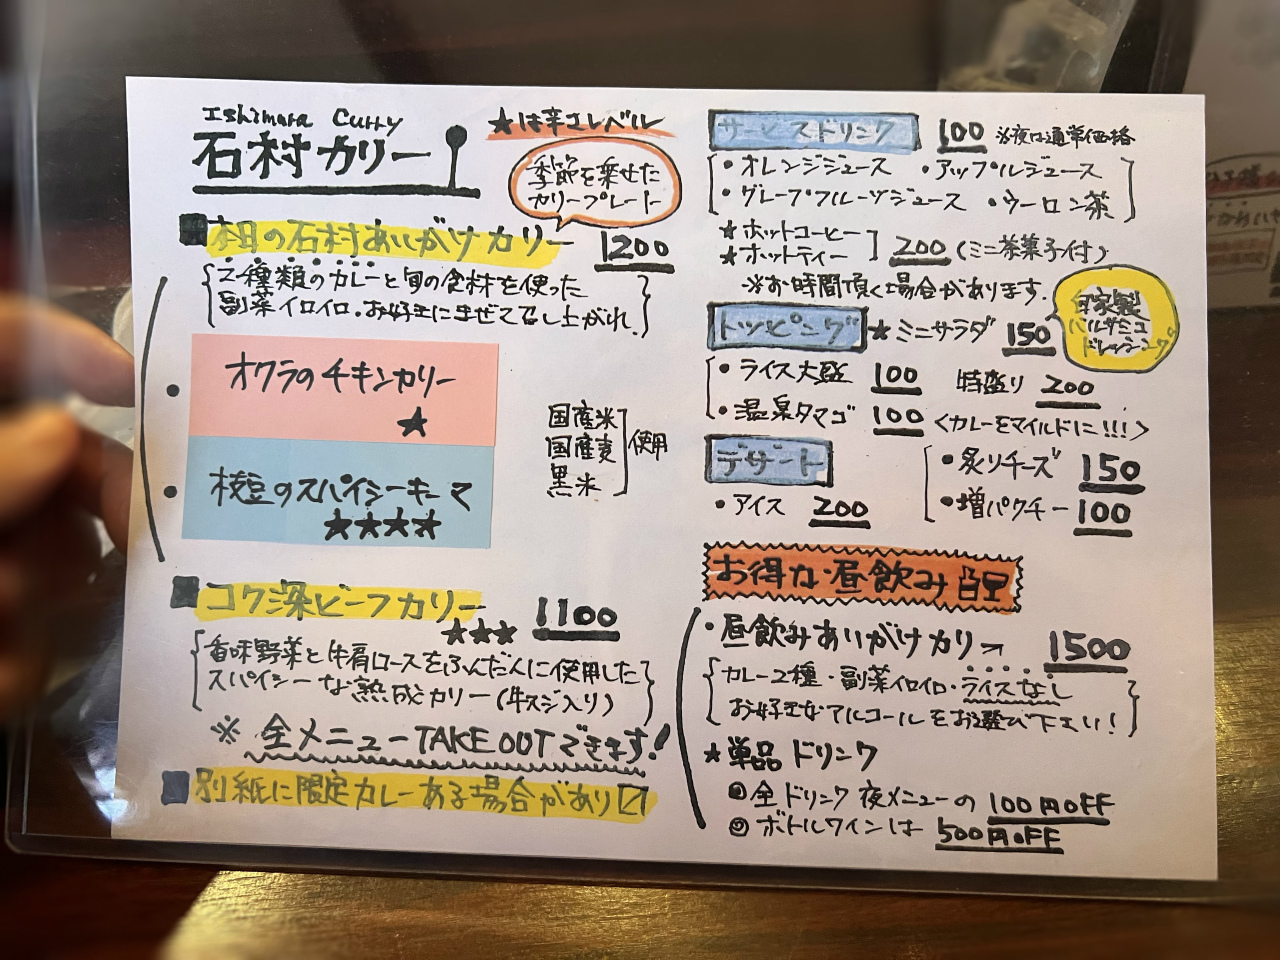 Ishimura Curry
石村カリー
★は辛さレベル
季節を乗せた
カリープレート
本日の石村あいがけカリー 1200
2種類のカレーと旬の食材を使った
副菜イロイロ。お好きにまぜて召し上がれ。
・オクラのチキンカリー
★
・枝豆のスパイシーキーマ
★★★★
国産米
国産麦
黒米
使用
コク深ビーフカリー
★★★ 1100
香味野菜と牛肩ロースをふんだんに使用した
スパイシーな熟成カリー(牛スジ入り)
※全メニューTAKE OUTできます!
別紙に限定カレーある場合があり〼
サービスドリンク 100 ※夜は通常価格
・オレンジジュース ・アップルジュース
・グレープフルーツジュース ・ウーロン茶
★ホットコーヒー
★ホットティー
200 (ミニ茶菓子付)
※お時間頂く場合があります。
トッピング ★ミニサラダ 150
自家製
バルサミコ
ドレッシング
・ライス大盛 100 特盛り 200
・温泉タマゴ 100 <カレーをマイルドに!!!>
デザート
・アイス 200
・炙りチーズ 150
・増パクチー 100
お得な昼飲み
・昼飲みあいがけカリー 1500
カレー2種・副菜イロイロ・ライスなし
お好きなアルコールをお選び下さい!
★単品ドリンク
①全ドリンク夜メニューの 100円OFF
②ボトルワインは 500円OFF